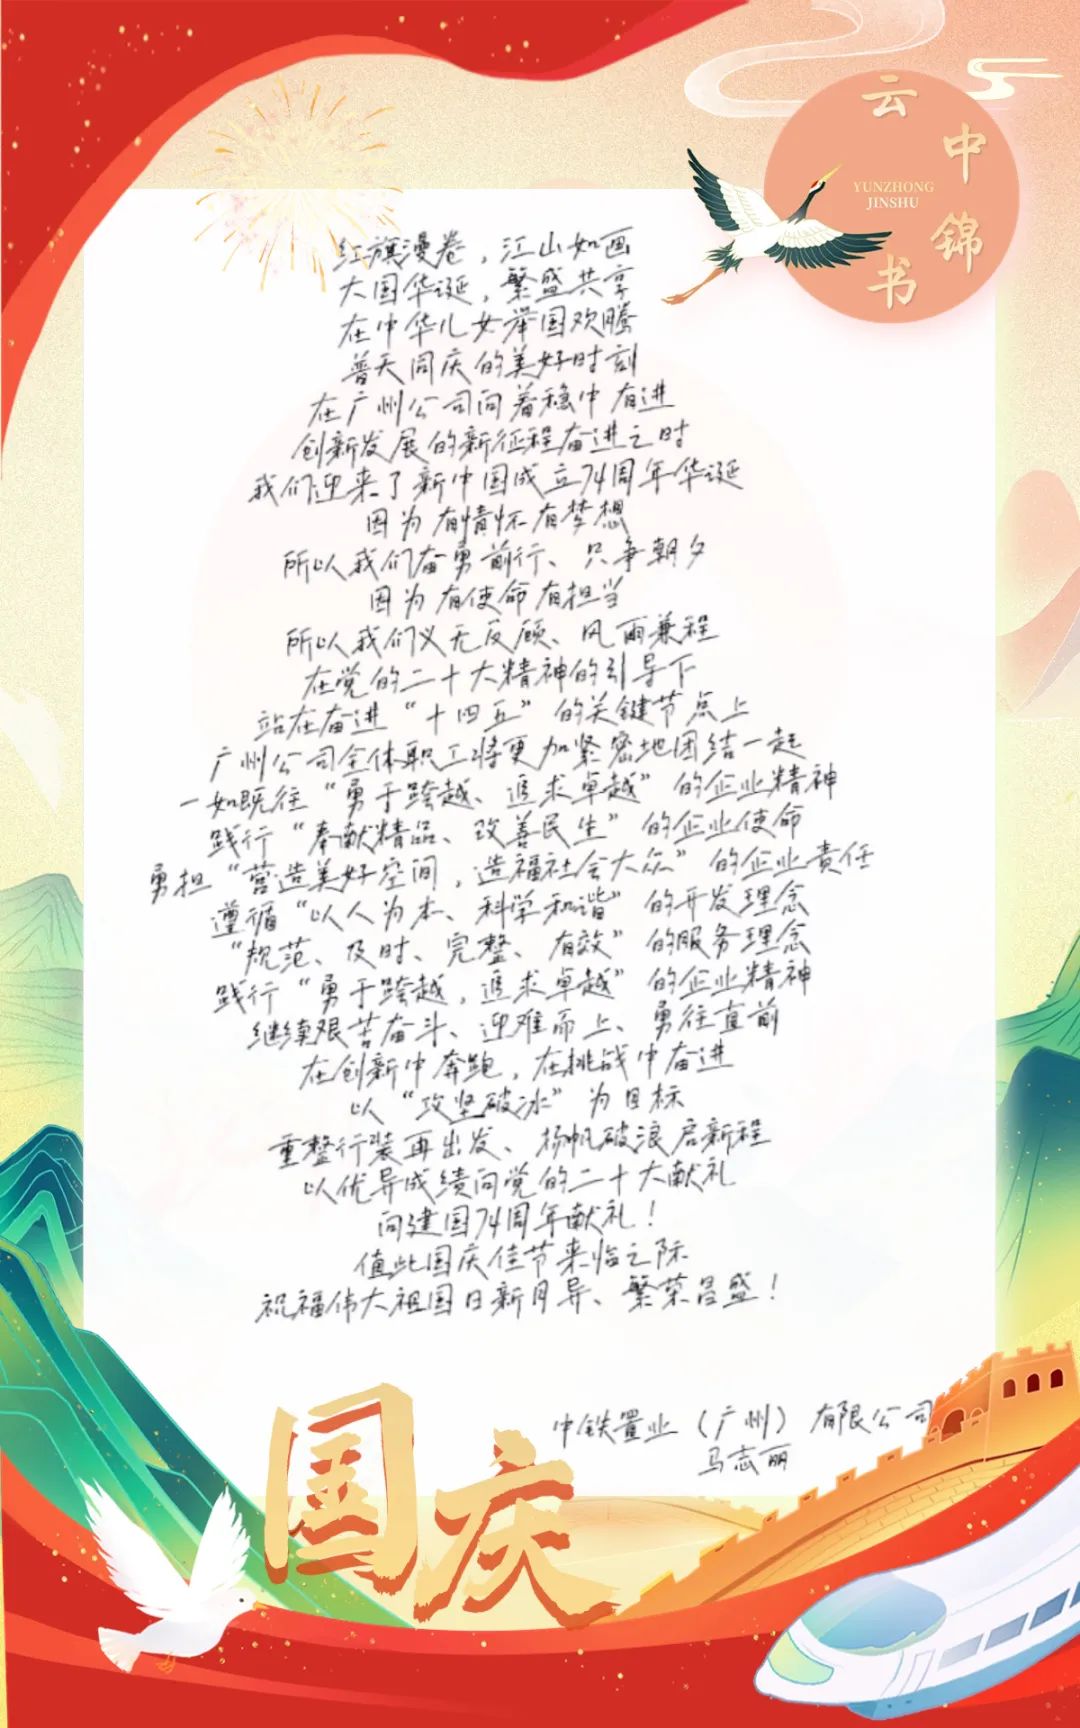 云中锦书
YUNZHONG
JINSHU
红旗漫卷，江山如画
大国华诞，繁盛共享
在中华儿女举国欢腾
普天同庆的美好时刻
在广州公司向着稳中有进
创新发展的新征程奋进之时
我们迎来了新中国成立74周年华诞
因为有情怀有梦想
所以我们奋勇前行、只争朝夕
因为有使命有担当
所以我们义无反顾、风雨兼程
在党的二十大精神的引导下
站在奋进“十四五”的关键节点上
广州公司全体职工将更加紧密地团结一起
一如既往“勇于跨越、追求卓越”的企业精神
践行“奉献精品、改善民生”的企业使命
勇担“营造美好空间，造福社会大众”的企业责任
遵循“以人为本、科学和谐”的开发理念
“规范、及时、完整、有效”的服务理念
践行“勇于跨越，追求卓越”的企业精神
继续艰苦奋斗、迎难而上、勇往直前
在创新中奔跑，在挑战中奋进
以“攻坚破冰”为目标
重整行装再出发、扬帆破浪启新程
以优异成绩向党的二十大献礼
向建国74周年献礼！
值此国庆佳节来临之际
祝福伟大祖国日新月异、繁荣昌盛！
中铁置业（广州）有限公司
马志丽
国庆